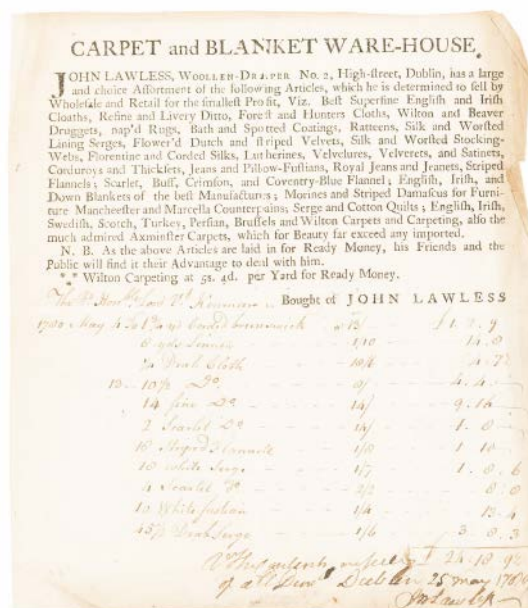 CARPET and BLANKET WARE-HOUSE.
JOHN LAWLESS, WOOLLEN-DRAPER No. 2, High-street, Dublin, has a large
and choice Assortment of the following Articles, which he is determined to sell by
Wholesale and Retail for the smallest Profit, Viz. Best Superfine English and Irish
Cloaths, Refine and Livery Ditto, Forest and Hunters Cloths, Wilton and Beaver
Druggets, nap'd Rugs, Bath and Spotted Coatings, Ratteens, Silk and Worsted
Lining Serges, Flower'd Dutch and striped Velvets, Silk and Worsted Stocking-
Webs, Florentine and Corded Silks, Lutherines, Velvelures, Velverets, and Satinets,
Corduroys and Thicksets, Jeans and Pillow-Fustians, Royal Jeans and Jeanets, Striped
Flannels; Scarlet, Buff, Crimson, and Coventry-Blue Flannel; English, Irish, and
Down Blankets of the best Manufactures; Morines and Striped Damascus for Furni-
ture Mancheester and Marcella Counterpains; Serge and Cotton Quilts; English, Irish,
Swedish, Scotch, Turkey, Persian, Brussels and Wilton Carpets and Carpeting, also the
much admired Axminster Carpets, which for Beauty far exceed any imported.
N. B. As the above Articles are laid in for Ready Money, his Friends and the
Public will find it their Advantage to deal with him.
Wilton Carpeting at 5s. 4d. per Yard for Ready Money.
Bought of JOHN LAWLESS
May 4 To
6 yds 1/10
Drab Cloth 10/
10½ Do
14 fine Do 14/ 9.16
2 Scarlet Do 14/ 1.8
16 Striped 1/10 1.10
White Serge 1/7 1.8.6
4 Scarlet Do 2/2 8.8
10 White fustian 1/4 13.4
Drab Serge 1/6 3.8.3
Dublin 25 May
Jn Lawless